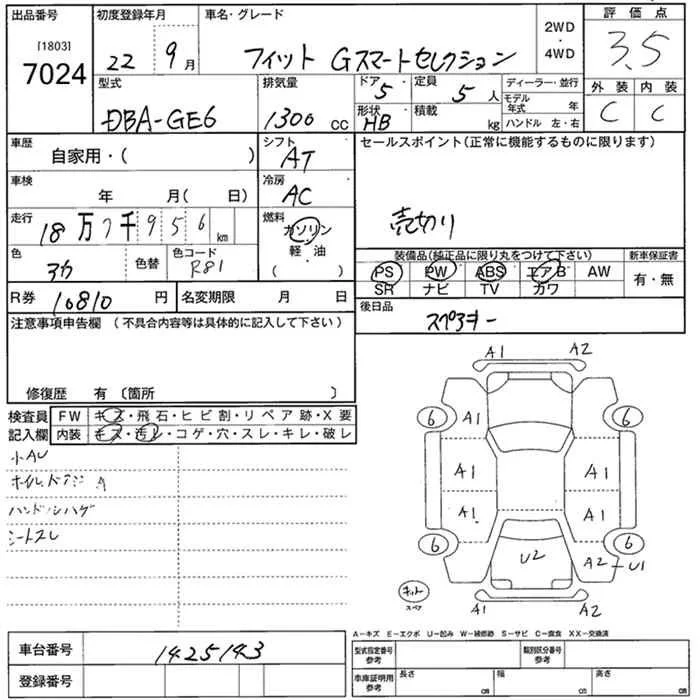 出品番号
[1803]
7024
初度登録年月
22 9月
車名・グレード
フィット Gスマートセレクション
2WD
・
4WD
評価点
3.5
型式
DBA-GE6
排気量
1300 cc
ドア
5
定員
5 人
形状
HB
積載
kg
ディーラー・並行
モデル年式 年
ハンドル 左・右
外装 内装
C C
車歴
自家用・( )
シフト
AT
車検
年 月( 日)
冷房
AC
走行
18万7千956km
燃料
ガソリン
軽・油
・
( )
色
アカ
色替
色コード
R81
R券 10810 円
名変期限 月 日
セールスポイント(正常に機能するものに限ります)
売切り
装備品(純正品に限り丸をつけて下さい)
PS PW ABS エアB AW
SR ナビ TV カワ
新車保証書
有・無
後日品
スペアキー
注意事項申告欄 (不具合内容等は具体的に記入して下さい)
修復歴 有 〔箇所 〕
検査員記入欄
FW キズ・飛石・ヒビ割・リペア跡・X要
内装 キズ・汚レ・コゲ・穴・スレ・キレ・破レ
小AU
ハンドルハゲ
シートスレ
A1 A2
6 A1 6
A1 A1
A1 A1
6 6
U2 A2-U1
キット
スペア
A1 A2
A-キズ E-エクボ U-凹み W-補修跡 S-サビ C-腐食 XX-交換済
車台番号
1425143
登録番号
型式指定番号
参考
類別区分番号
参考
車庫証明用
参考
長さ cm
幅 cm
高さ cm